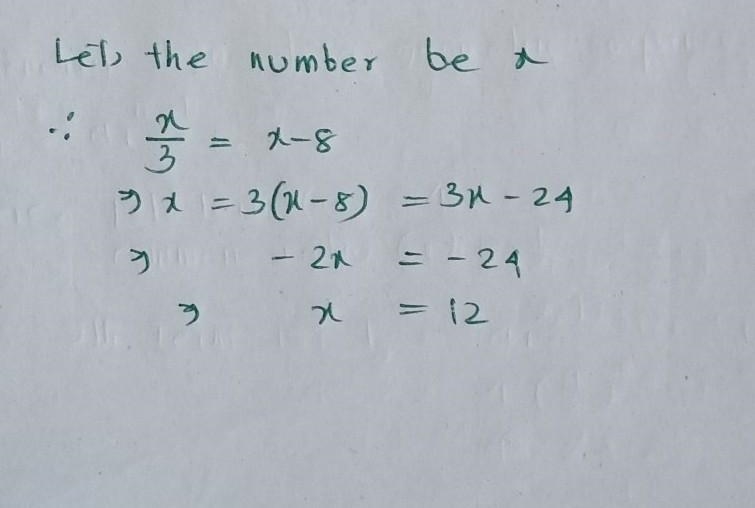 Let, the number be x
∴ x/3 = x-8
⇒ x = 3(x-8) = 3x - 24
⇒ - 2x = - 24
⇒ x = 12